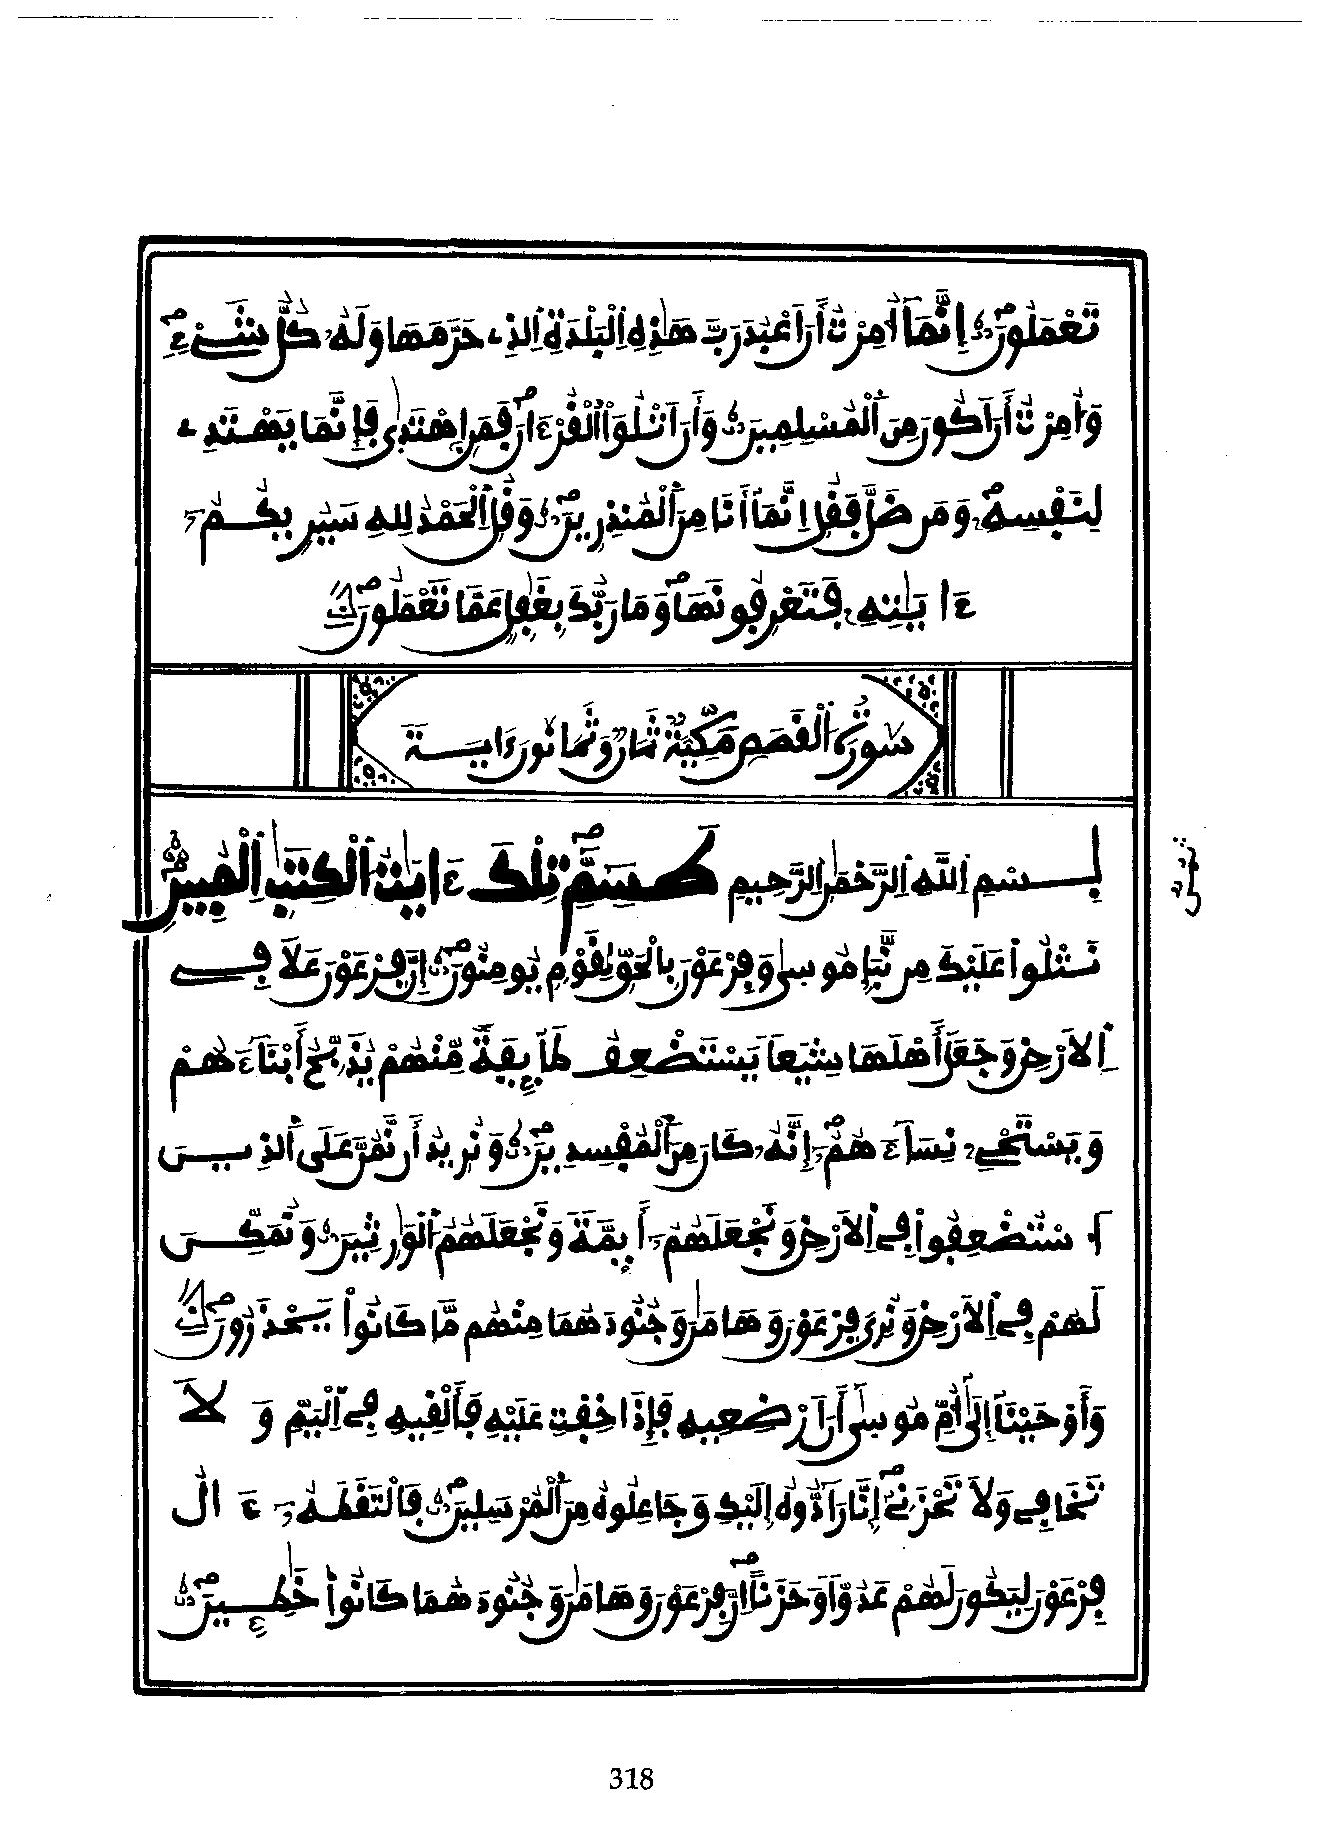 تَعْمَلُونَ إِنَّمَا أُمِرْتُ أَنَ اَعْبُدَ رَبَّ هَٰذِهِ اِلْبَلْدَةِ اِلذِے حَرَّمَهَا وَلَهُۥ كُلُّ شَےْءٖ
وَأُمِرْتُ أَنَ اَكُونَ مِنَ اَلْمُسْلِمِينَ وَأَنَ اَتْلُوَاْ اُلْقُرْءَانَ فَمَنِ اِهْتَد۪ىٰ فَإِنَّمَا يَهْتَدِے
لِنَفْسِهِۦ وَمَن ضَلَّ فَقُلِ اِنَّمَآ أَنَا مِنَ اَلْمُنذِرِينَ وَقُلِ اِلْحَمْدُ لِلهِ سَيُرِيكُمُۥٓ
ءَايَٰتِهِۦ فَتَعْرِفُونَهَا وَمَا رَبُّكَ بِغَٰفِلٍ عَمَّا تَعْمَلُونَ
سُورَةُ اَلْقَصَصِ مَكِّيَّةٌ ثَمَانٌ وَثَمَانُونَ ءَايَــةً
بِسْمِ اِللَّهِ اِلرَّحْمَٰنِ اِلرَّحِيمِ طَسِمِّٓ تِلْكَ ءَايَٰتُ اَلْكِتَٰبِ اِلْمُبِينِ
نَتْلُواْ عَلَيْكَ مِن نَّبَإِ مُوسىٰ وَفِرْعَوْنَ بِالْحَقِّ لِقَوْمٖ يُومِنُونَ إِنَّ فِرْعَوْنَ عَلَا فِے
اِلَارْضِ وَجَعَلَ أَهْلَهَا شِيَعاٗ يَسْتَضْعِفُ طَآئِفَةٗ مِّنْهُمْ يُذَبِّحُ أَبْنَآءَهُمْ
وَيَسْتَحْيِۦ نِسَآءَهُمُۥٓ إِنَّهُۥ كَانَ مِنَ اَلْمُفْسِدِينَ وَنُرِيدُ أَن نَّمُنَّ عَلَى اَلذِينَ
اَ۟سْتُضْعِفُواْ فِے اِلَارْضِ وَنَجْعَلَهُمُۥٓ أَئِمَّةٗ وَنَجْعَلَهُمُ اُلْوَٰرِثِينَ وَنُمَكِّنَ
لَهُمْ فِے اِلَارْضِ وَنُرِيَ فِرْعَوْنَ وَهَامَٰنَ وَجُنُودَهُمَا مِنْهُم مَّا كَانُواْ يَحْذَرُونَ
وَأَوْحَيْنَآ إِلَىٰٓ أُمِّ مُوسىٰٓ أَنَ اَرْضِعِيهِ فَإِذَا خِفْتِ عَلَيْهِ فَأَلْقِيهِ فِے اِلْيَمِّ وَلَا
تَخَافِے وَلَا تَحْزَنِےٓ إِنَّا رَآدُّوهُ إِلَيْكِ وَجَاعِلُوهُ مِنَ اَلْمُرْسَلِينَ فَالْتَقَطَهُۥٓ ءَالُ
فِرْعَوْنَ لِيَكُونَ لَهُمْ عَدُوّاٗ وَحَزَناً اِنَّ فِرْعَوْنَ وَهَامَٰنَ وَجُنُودَهُمَا كَانُواْ خَٰطِـِٕينَ
318